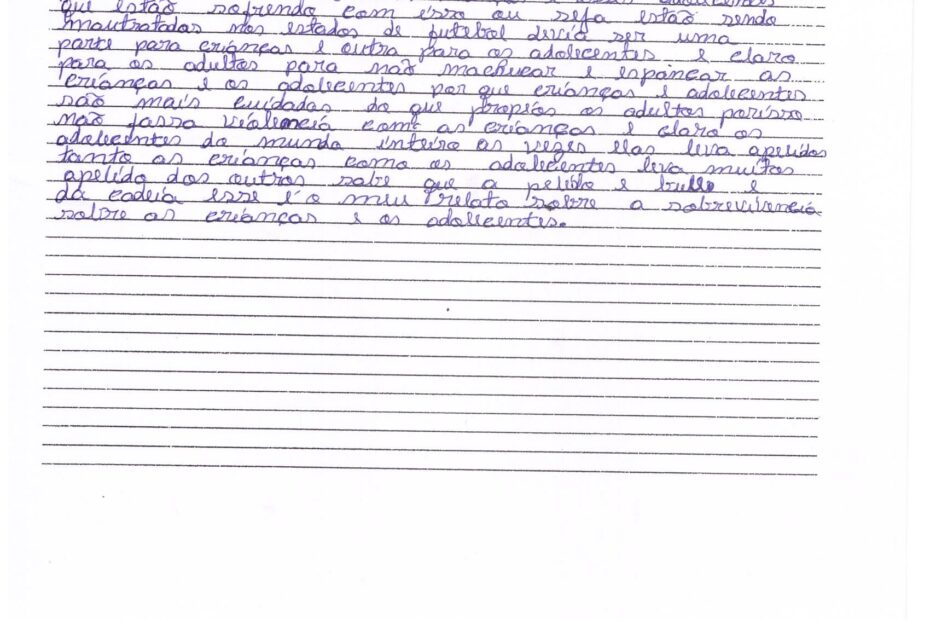 que estão sofrendo com isso ou seja estão sendo
mautratadas nos estados de futebal devia ser uma
parte para crianças e outra para os adolecentes e claro
para os adultos para não machucar e espancar as
crianças e os adolecentes por que crianças e adolecentes
são mais cuidadas do que propios os adultos porisso
não fassa violencia com as crianças e claro os
adolecentes do mundo inteiro as vezes elas leva apelidos
tanto as crianças como os adolecentes leva muitos
apelido dos outros sabe que a pelido e bullo e
da cadeia esse é o meu relato sobre a sobrevivencia
sobre as crianças e os adolecentes.